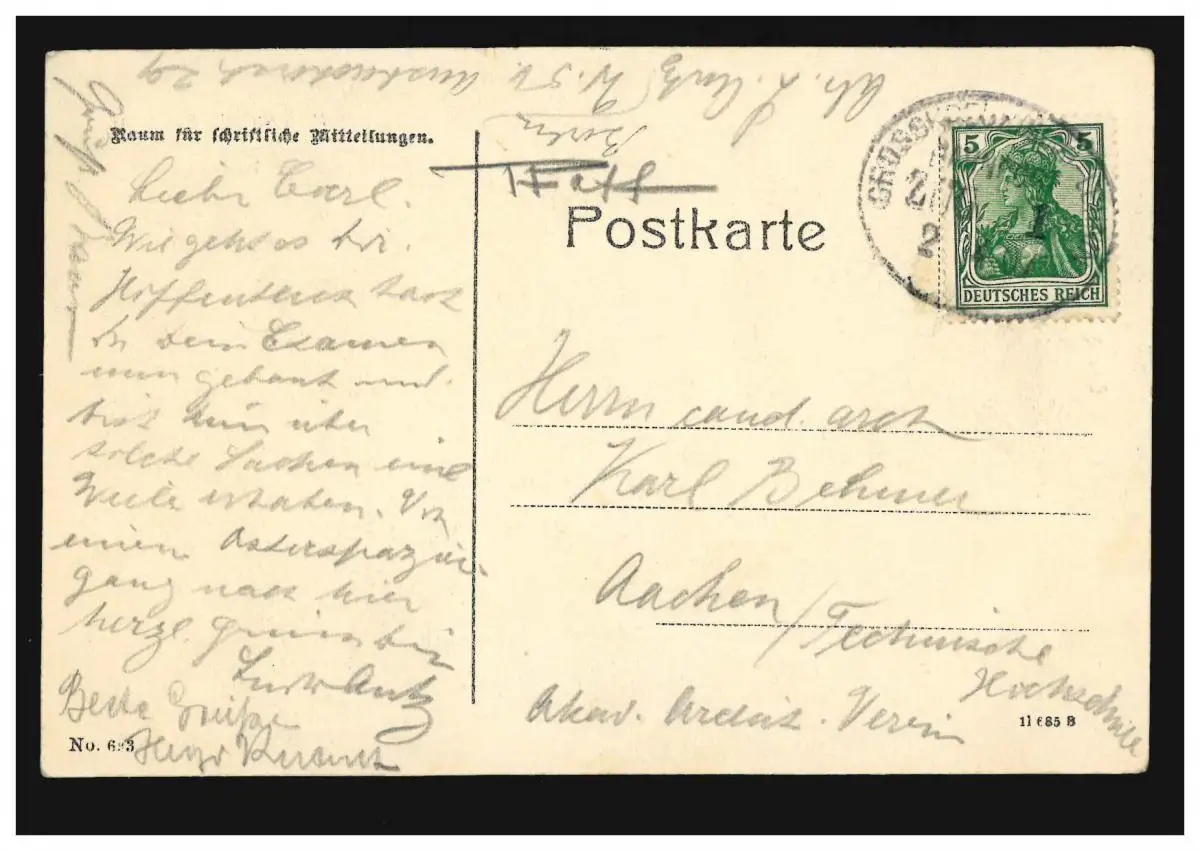 Raum für schriftliche Mitteilungen.
Postkarte
5 5
DEUTSCHES REICH
Lieber Carl.
Wie geht es Dir.
Hoffentlich hast
Du Dein Examen
nun gebaut und
bist nun über
solche Sachen eine
Weile erhaben. Von
einem Osterspazier-
gang nach hier
herzl. Grüsse Dir
Beste Grüße
Hugo
No. 693
Herrn cand. arch
Karl Behmer
Aachen / Technische
Hochschule
Akad. Archit. Verein
11685 B
Abs. L.
Berlin